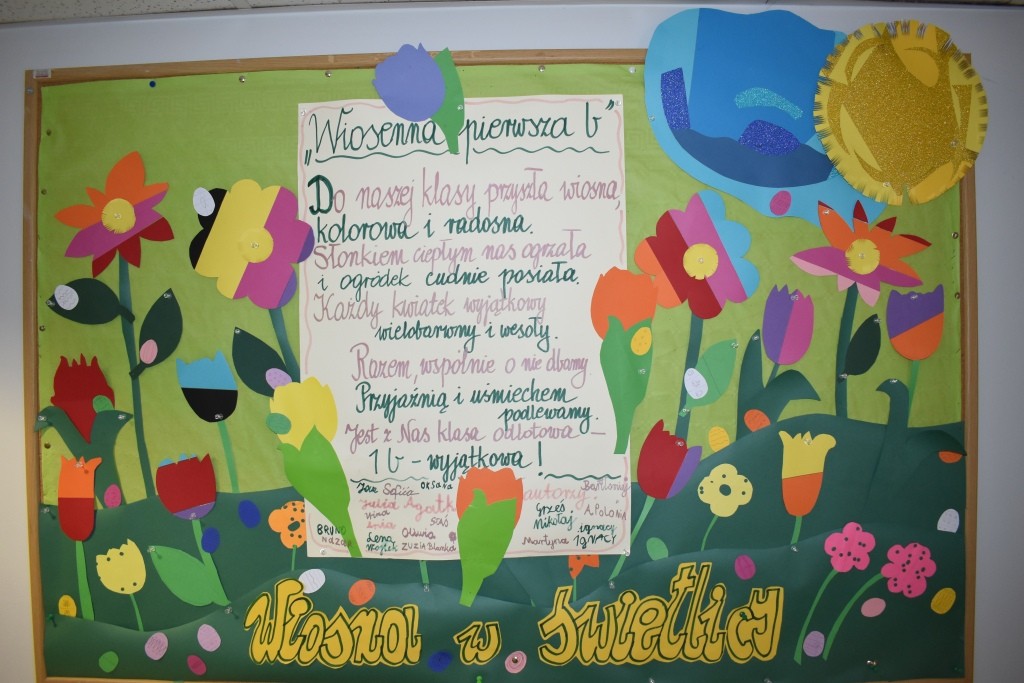 „Wiosenna pierwsza b"
Do naszej klasy przyszła wiosna,
kolorowa i radosna.
Słonkiem ciepłym nas ogrzała
i ogródek cudnie posiała.
Każdy kwiatek wyjątkowy
wielobarwny i wesoły.
Razem, wspólnie o nie dbamy.
Przyjaźnią i uśmiechem
podlewamy.
Jest z Nas klasa odlotowa –
1 b – wyjątkowa!
Igor Sofiia OKSANA
Julia Agatk autorzy:
Lena Oliwia
ZUZIA Blanka
BRUNO
NAZAR
Wojtek
Grześ
Mikołaj
Martyna
Bartłomiej
A.POLONIA
Ignacy
IGNACY
Wiosna w świetlicy